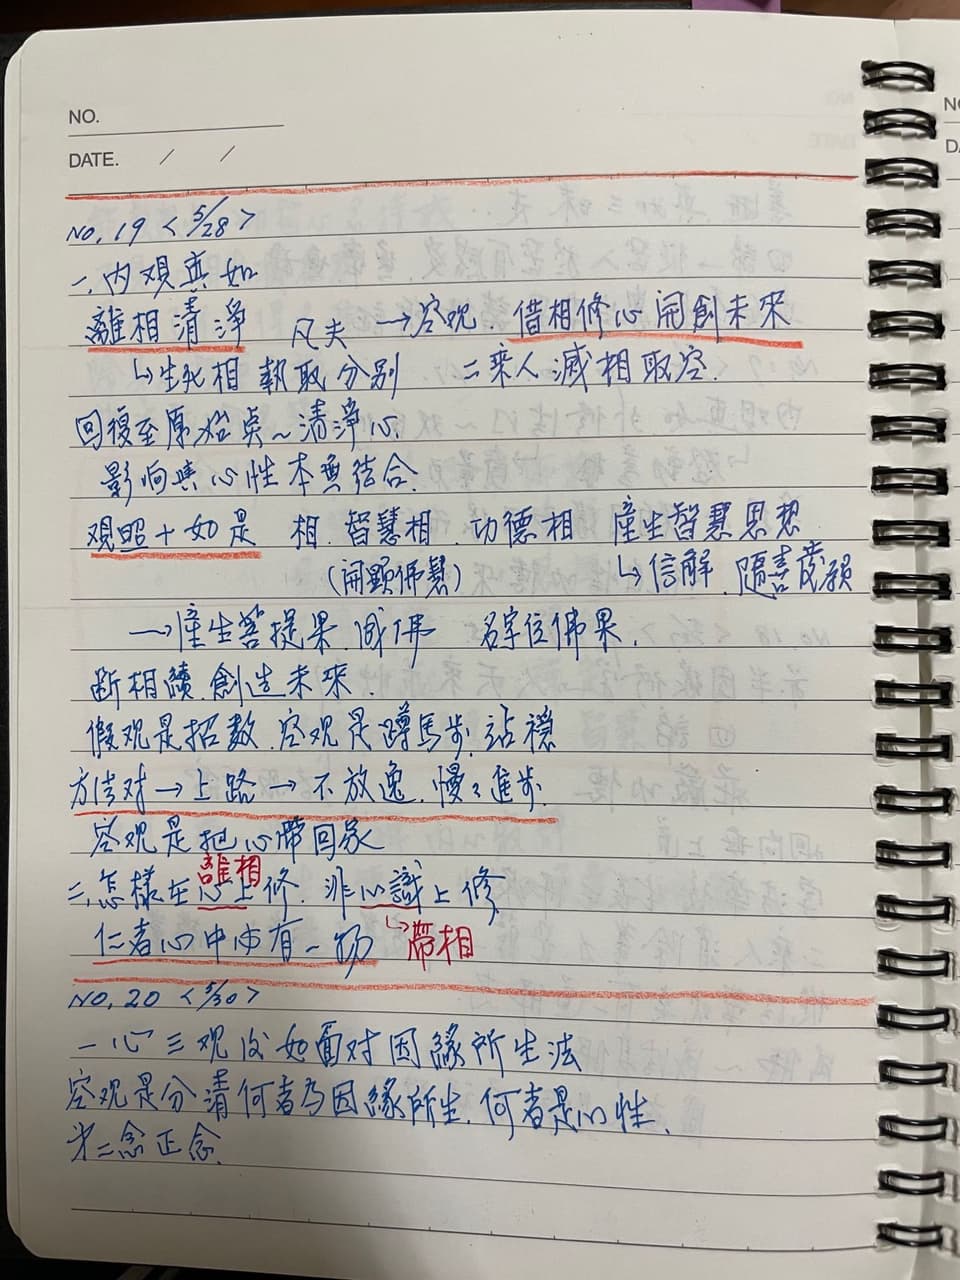 NO.
DATE. / /
No, 19 <5/28>
一、內观真如
離相清淨 凡夫 →空观. 借相修心 開創未來
↳生死相 執取分別 二乘人滅相取空.
回復至原始点~清淨心.
影响與心性本真結合.
观照十如是 相. 智慧相. 功德相 產生智慧思想
(開顯佛慧) ↳信解. 隨喜度願
→產生菩提果 成佛 名字位佛果.
断相續. 創造未來.
假观是招數. 空观是蹲馬步. 站穩
方法对→上路→不放逸. 慢々進步.
空观是把心帶回家
離相
二、怎樣在心上修. 非心識上修.
仁者心中本有一物 ↳帶相
NO, 20 <5/30>
一心三观 汝如面对因緣所生法
空观是分清何者為因緣所生. 何者是心性.
才二念正念.